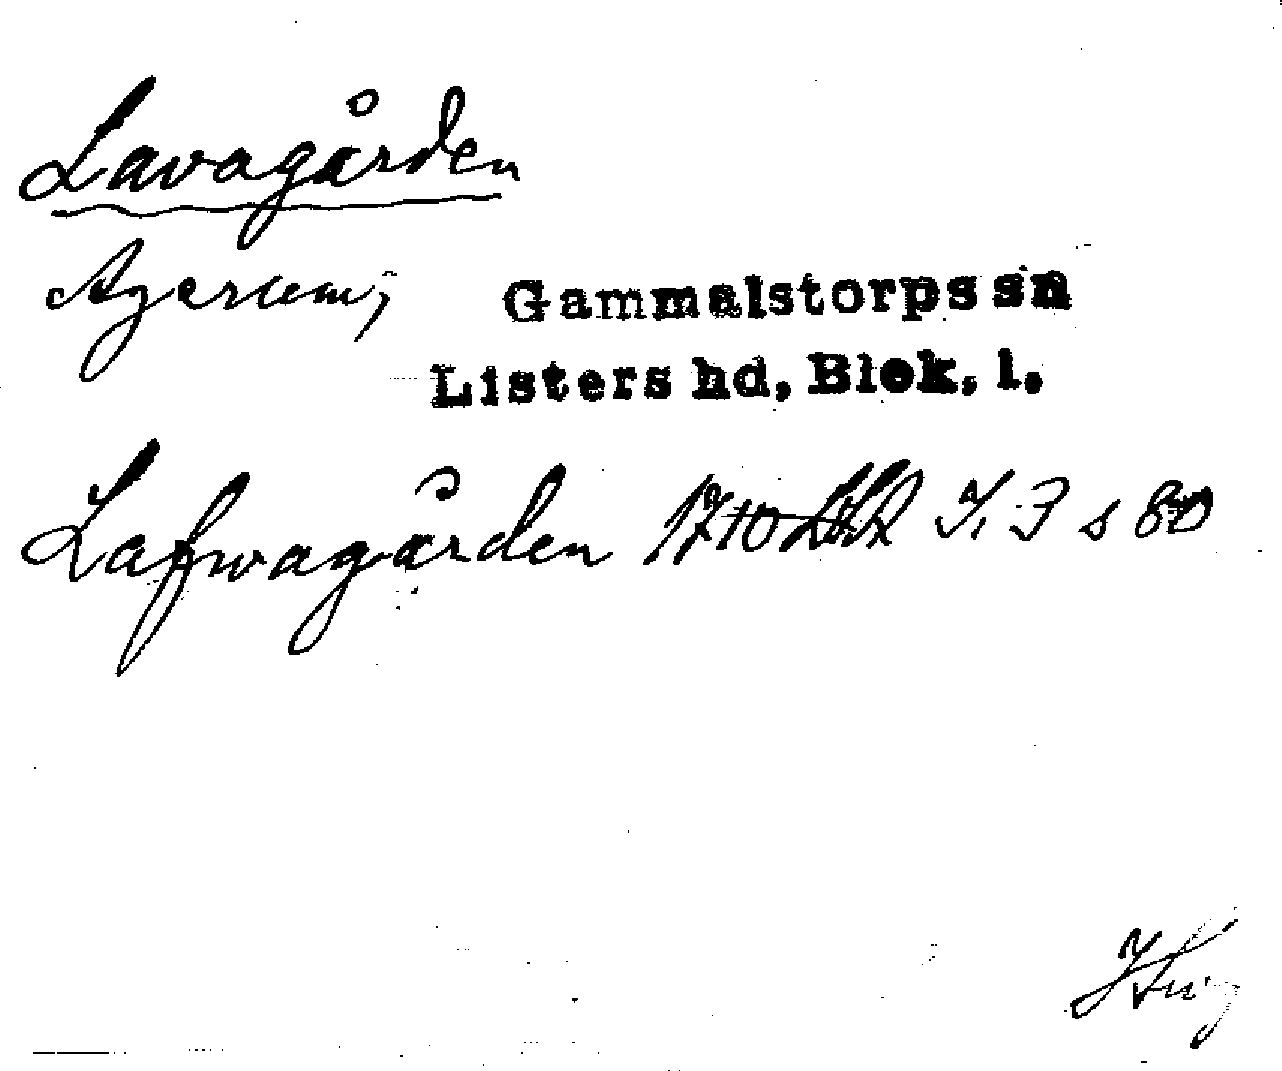 Lavagården
Agerum; Gammalstorps sn
Listers hd, Blek. l.
Lafwagården 1710 s 80